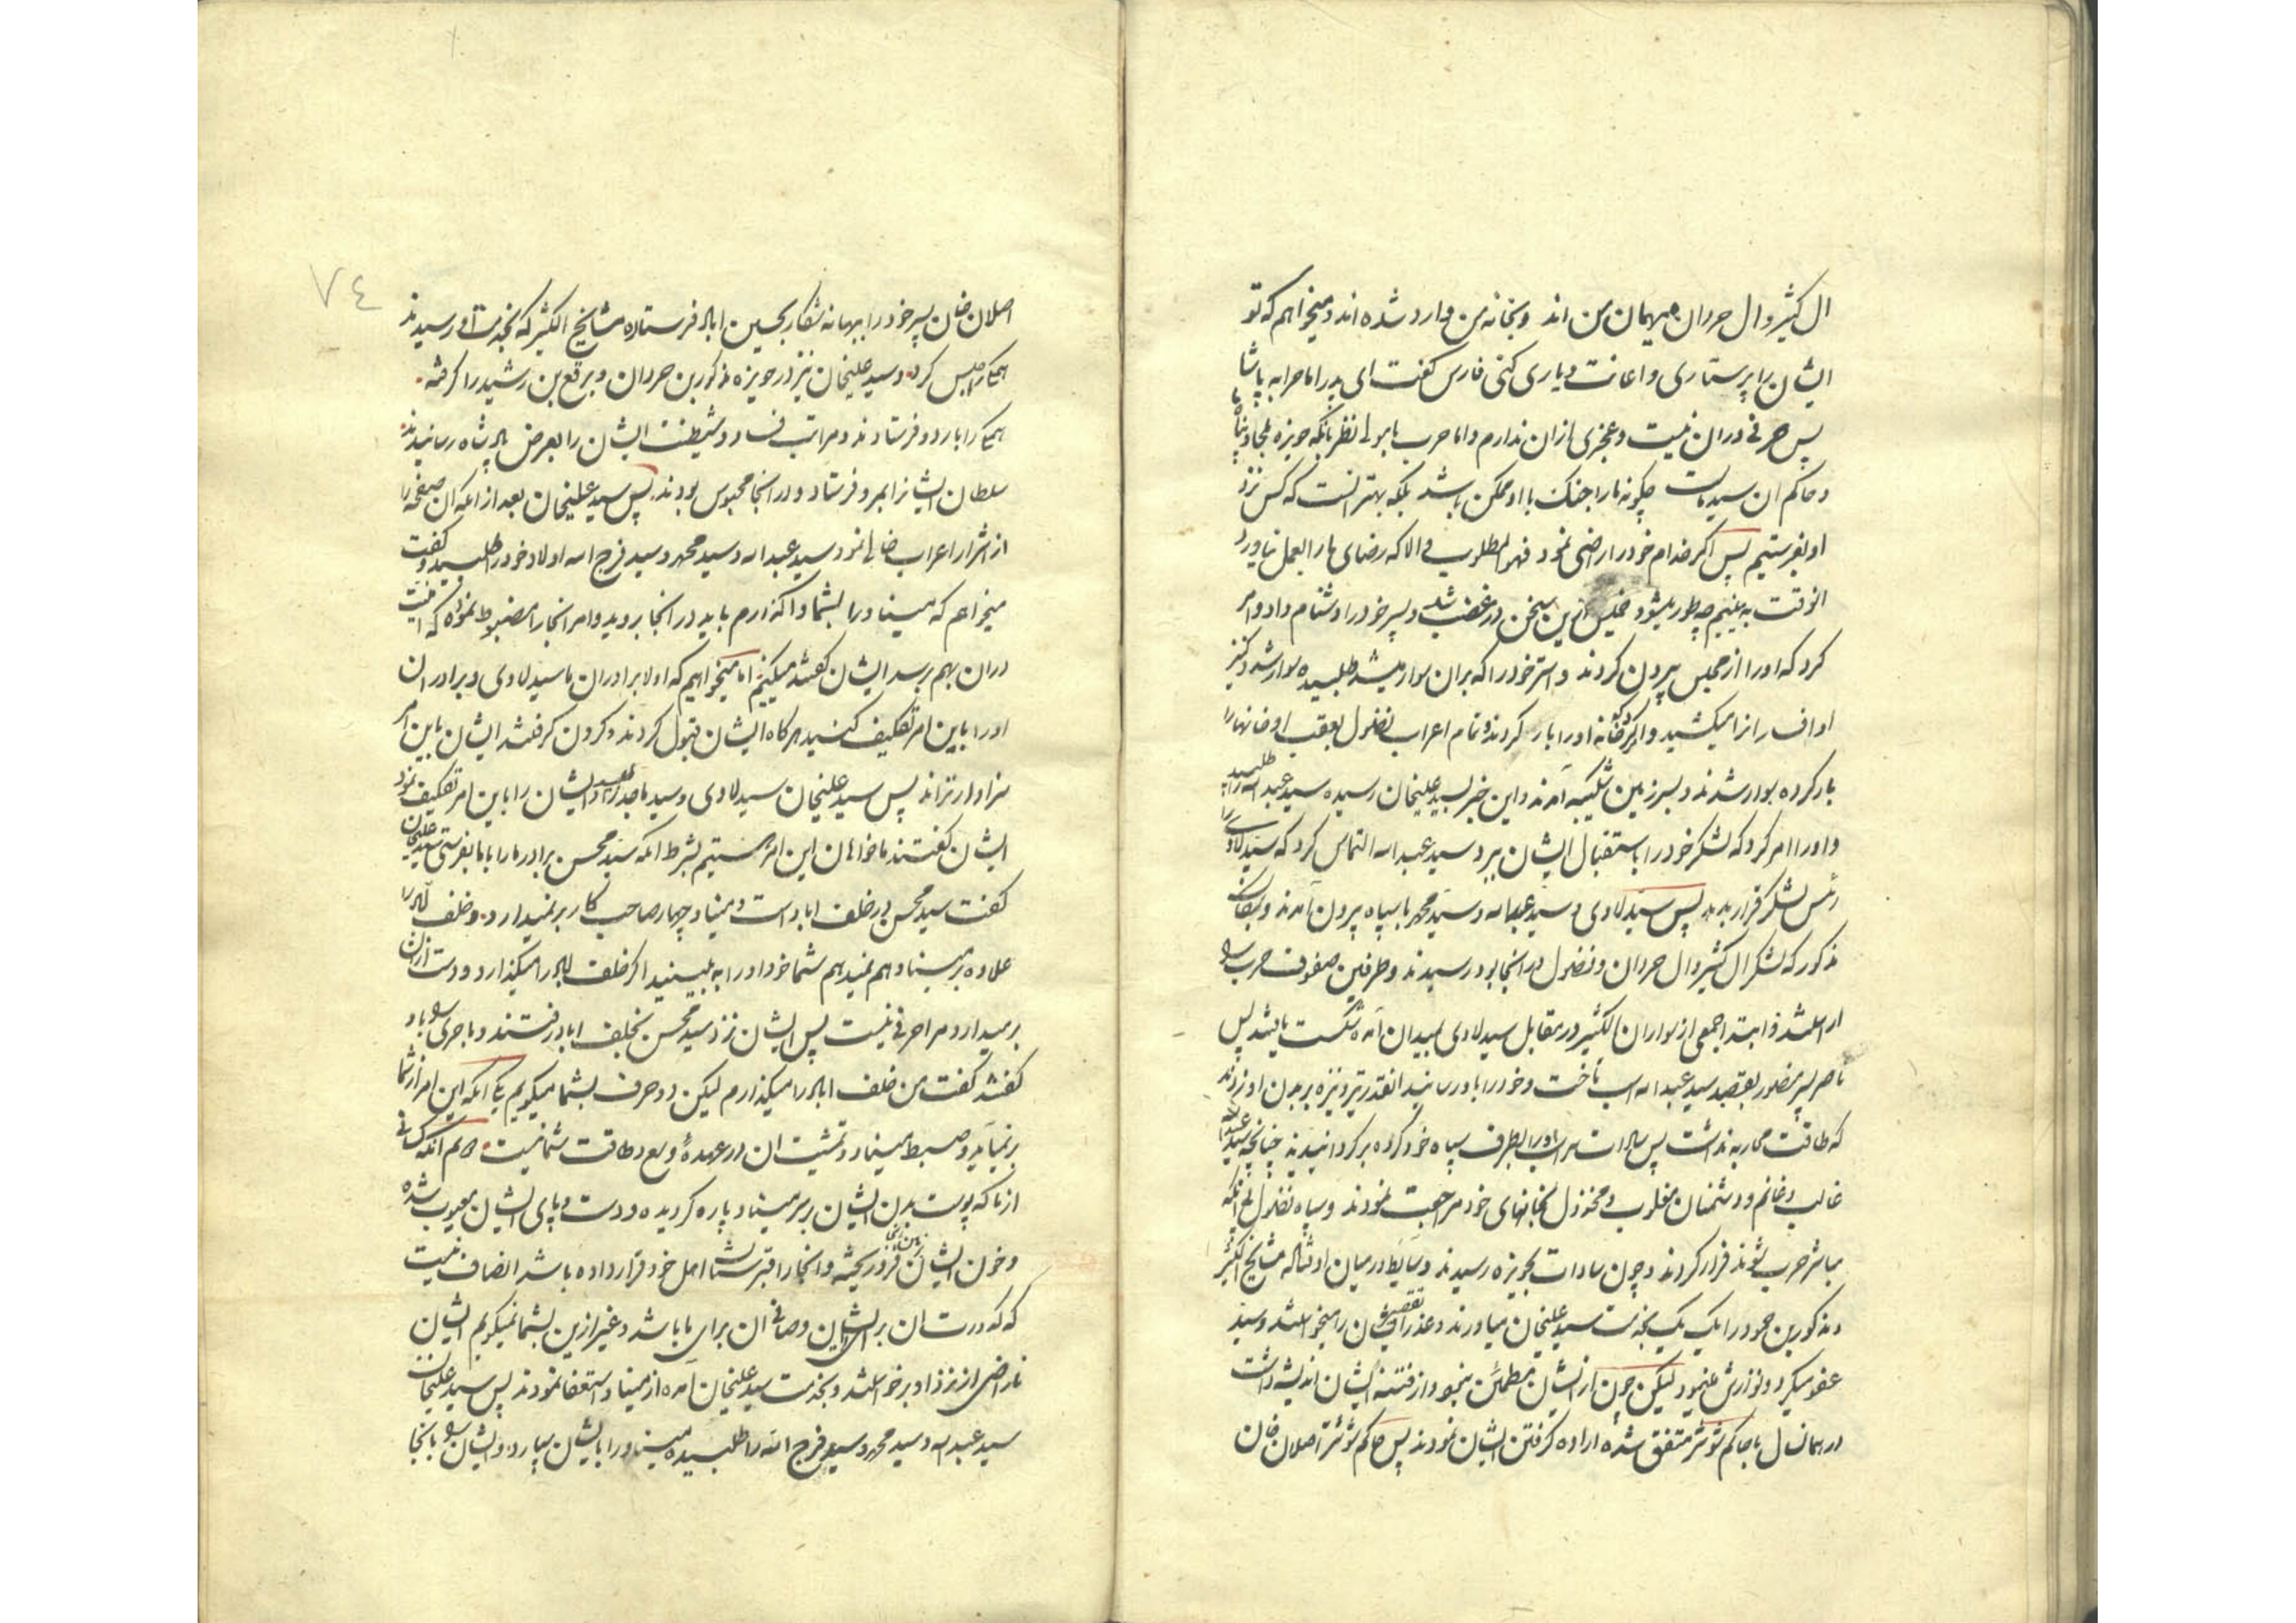 ال کثیر و ال حردان میهمان من اند و بخانه من وارد شده اند و میخواهم که تو
ایشان را پرستاری و اعانت و یاری کنی فارس گفت ای پدر اما حرابه پاشا
پس حرفی در ان نیست و عجزی از ان ندارم و اما حرب با مولی نظر بانکه حویزه ملجا و پناه ما
و حاکم ان سید ماست چگونه ما را جنک با او ممکن باشد بلکه بهتر انست که کس نزد
او بفرستیم پس اکر خدام خود را راضی نمود فهو المطلوب و الا که رضای ما را بعمل نیاورد
انوقت به بینیم چه طور میشود خمیس ازین سخن در غضب شد و پسر خود را دشنام داد و امر
کرد که او را از مجلس بیرون کردند و استر خود را که بران سوار میشد طلبیده سوار شد و کنیز
او افسار انرا میکشید و اکثر خانه او را بار کردند و تمام اعراب فضول بعقب او خانها را
بار کرده سوار شدند و بسرزمین شکیبه آمدند و این خبر بسید علیخان رسیده سید عبد الله را طلبید
و او را امر کرد که لشکر خود را باستقبال ایشان ببرد و سید عبد الله التماس کرد که سید لاوی را
رئیس لشکر قرار بدهد پس سید لاوی و سید عبدالله و سید محمد با سپاه بیرون آمدند و بمکان
مذکور که لشکر ال کثیر و ال حردان و فضول در انجا بود رسیدند و طرفین صفوف حرب
اراستند و ابتدا جمعی از سواران الکثیر در مقابل سید لاوی بمیدان آمده شکست یافتند لیل
ناصر پسر منصور بقصد سید عبد الله اسب تاخت و خود را باو رسانید انقدر تیر و نیزه بر بدن او زدند
که طاقت محاربه نداشت پس سادات سر اسب او را بطرف سپاه خود کرده برکردانیدند چنانچه سید عبدالله
غالب و غانم و دشمنان مغلوب و مخذول بخانهای خود مراجعت نمودند و سپاه فضول بی انکه
مباشر حرب شوند فرار کردند و چون سادات بحویزه رسیدند وسایط در میان اوفتاده مشایخ الکثیر
و مذکورین حود را یک یک بخدمت سید علیخان میاورند و عذر تقصیر ایشان را میخواستند و سید
عفو میکرد و نوازش مینمود لیکن چون از ایشان مطمئن نبود و از فتنه ایشان اندیشه داشت
در همانسال با حاکم شوشتر متفق شده اراده کرفتن ایشان نمودند پس حاکم شوشتر اصلان خان
٧٤
اصلان خان پسر خود را ببهانه شکار بحسین اباد فرستاده مشایخ الکثیر که بخدمت او رسیدند
همکی را حبس کرد و سید علیخان نیز در حویزه مذکورین حردان و برقع بن رشید را کرفته
همکی را باردو فرستادند و مراتب فساد و شیطنت ایشان را بعرض پادشاه رسانیدند
سلطان ایشانرا بمرو فرستاد و در انجا محبوس بودند پس سید علیخان بعد از انکه ان صفحه را
از اشرار اعراب خالی نمود سید عبد الله و سید محمد و سید فرج الله اولاد خود را طلبید و گفت
میخواهم که میناو را بشما واگذارم باید در انجا بروید و امر انجا را مضبوط نموده که امنیت
دران بهم رسد ایشان گفتند میکنیم اما میخواهیم که اولا برادران ما سید لاوی و برادران
او را باین امر تکلیف کنید هرکاه ایشان قبول کردند و کردن کرفتند ایشان باین امر
سزاوارتراند پس سید علیخان سید لاوی و سید ماجد را طلبید و ایشان را باین امر تکلیف نمود
ایشان گفتند ما خواهان این امر هستیم بشرط انکه سید محسن برادر ما را با ما بفرستی سید علیخان
گفت سید محسن در خلف اباد است و میناو چهار صاحب کار برنمیدارد و خلف اباد را
علاوه بر میناو هم نمیدهم شما خود او را به بینید اکر خلف اباد را میکذارد و دست از ان
برمیدارد مرا حرفی نیست پس ایشان نزد سید محسن بخلف اباد رفتند و ماجری را باو
گفتند گفت من خلف اباد را میکذارم لیکن دو حرف بشما میکویم یکی انکه این امر از شما
بر نمیآید و ضبط میناو و تمشیت ان در عهده و وسع و طاقت شما نیست دویم انکه کسانی
از ما که پوست بدن ایشان بر سر میناو پاره کردیده و دست و پای ایشان معیوب شده
و خون ایشان بزمین انجا فرو ریخته و انجا را قبرستان اهل خود قرار داده باشد انصاف نیست
که کدورت ان برای ایشان و صافی ان برای ما باشد و غیر ازین بشما نمیکویم ایشان
ناراضی از نزد او برخواستند و بخدمت سید علیخان آمده از میناو استعفا نمودند پس سید علیخان
سید عبد الله و سید محمد و سید فرج الله را طلبیده میناو را بایشان سپارد و ایشان را بانجا